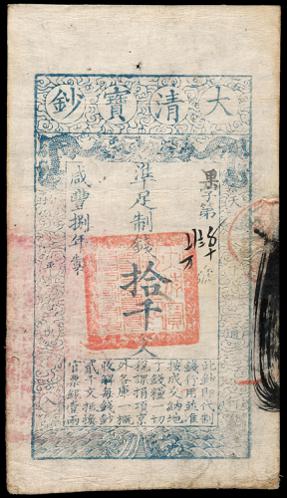 大清寶鈔
天下通行
果字第號
準足制錢拾千文
咸豐捌年製
此鈔即代制
錢行用並准
按成交納地
丁錢糧一切
稅課捐項京
外各庫一概
收解每錢鈔
貳千文抵換
官票銀壹兩